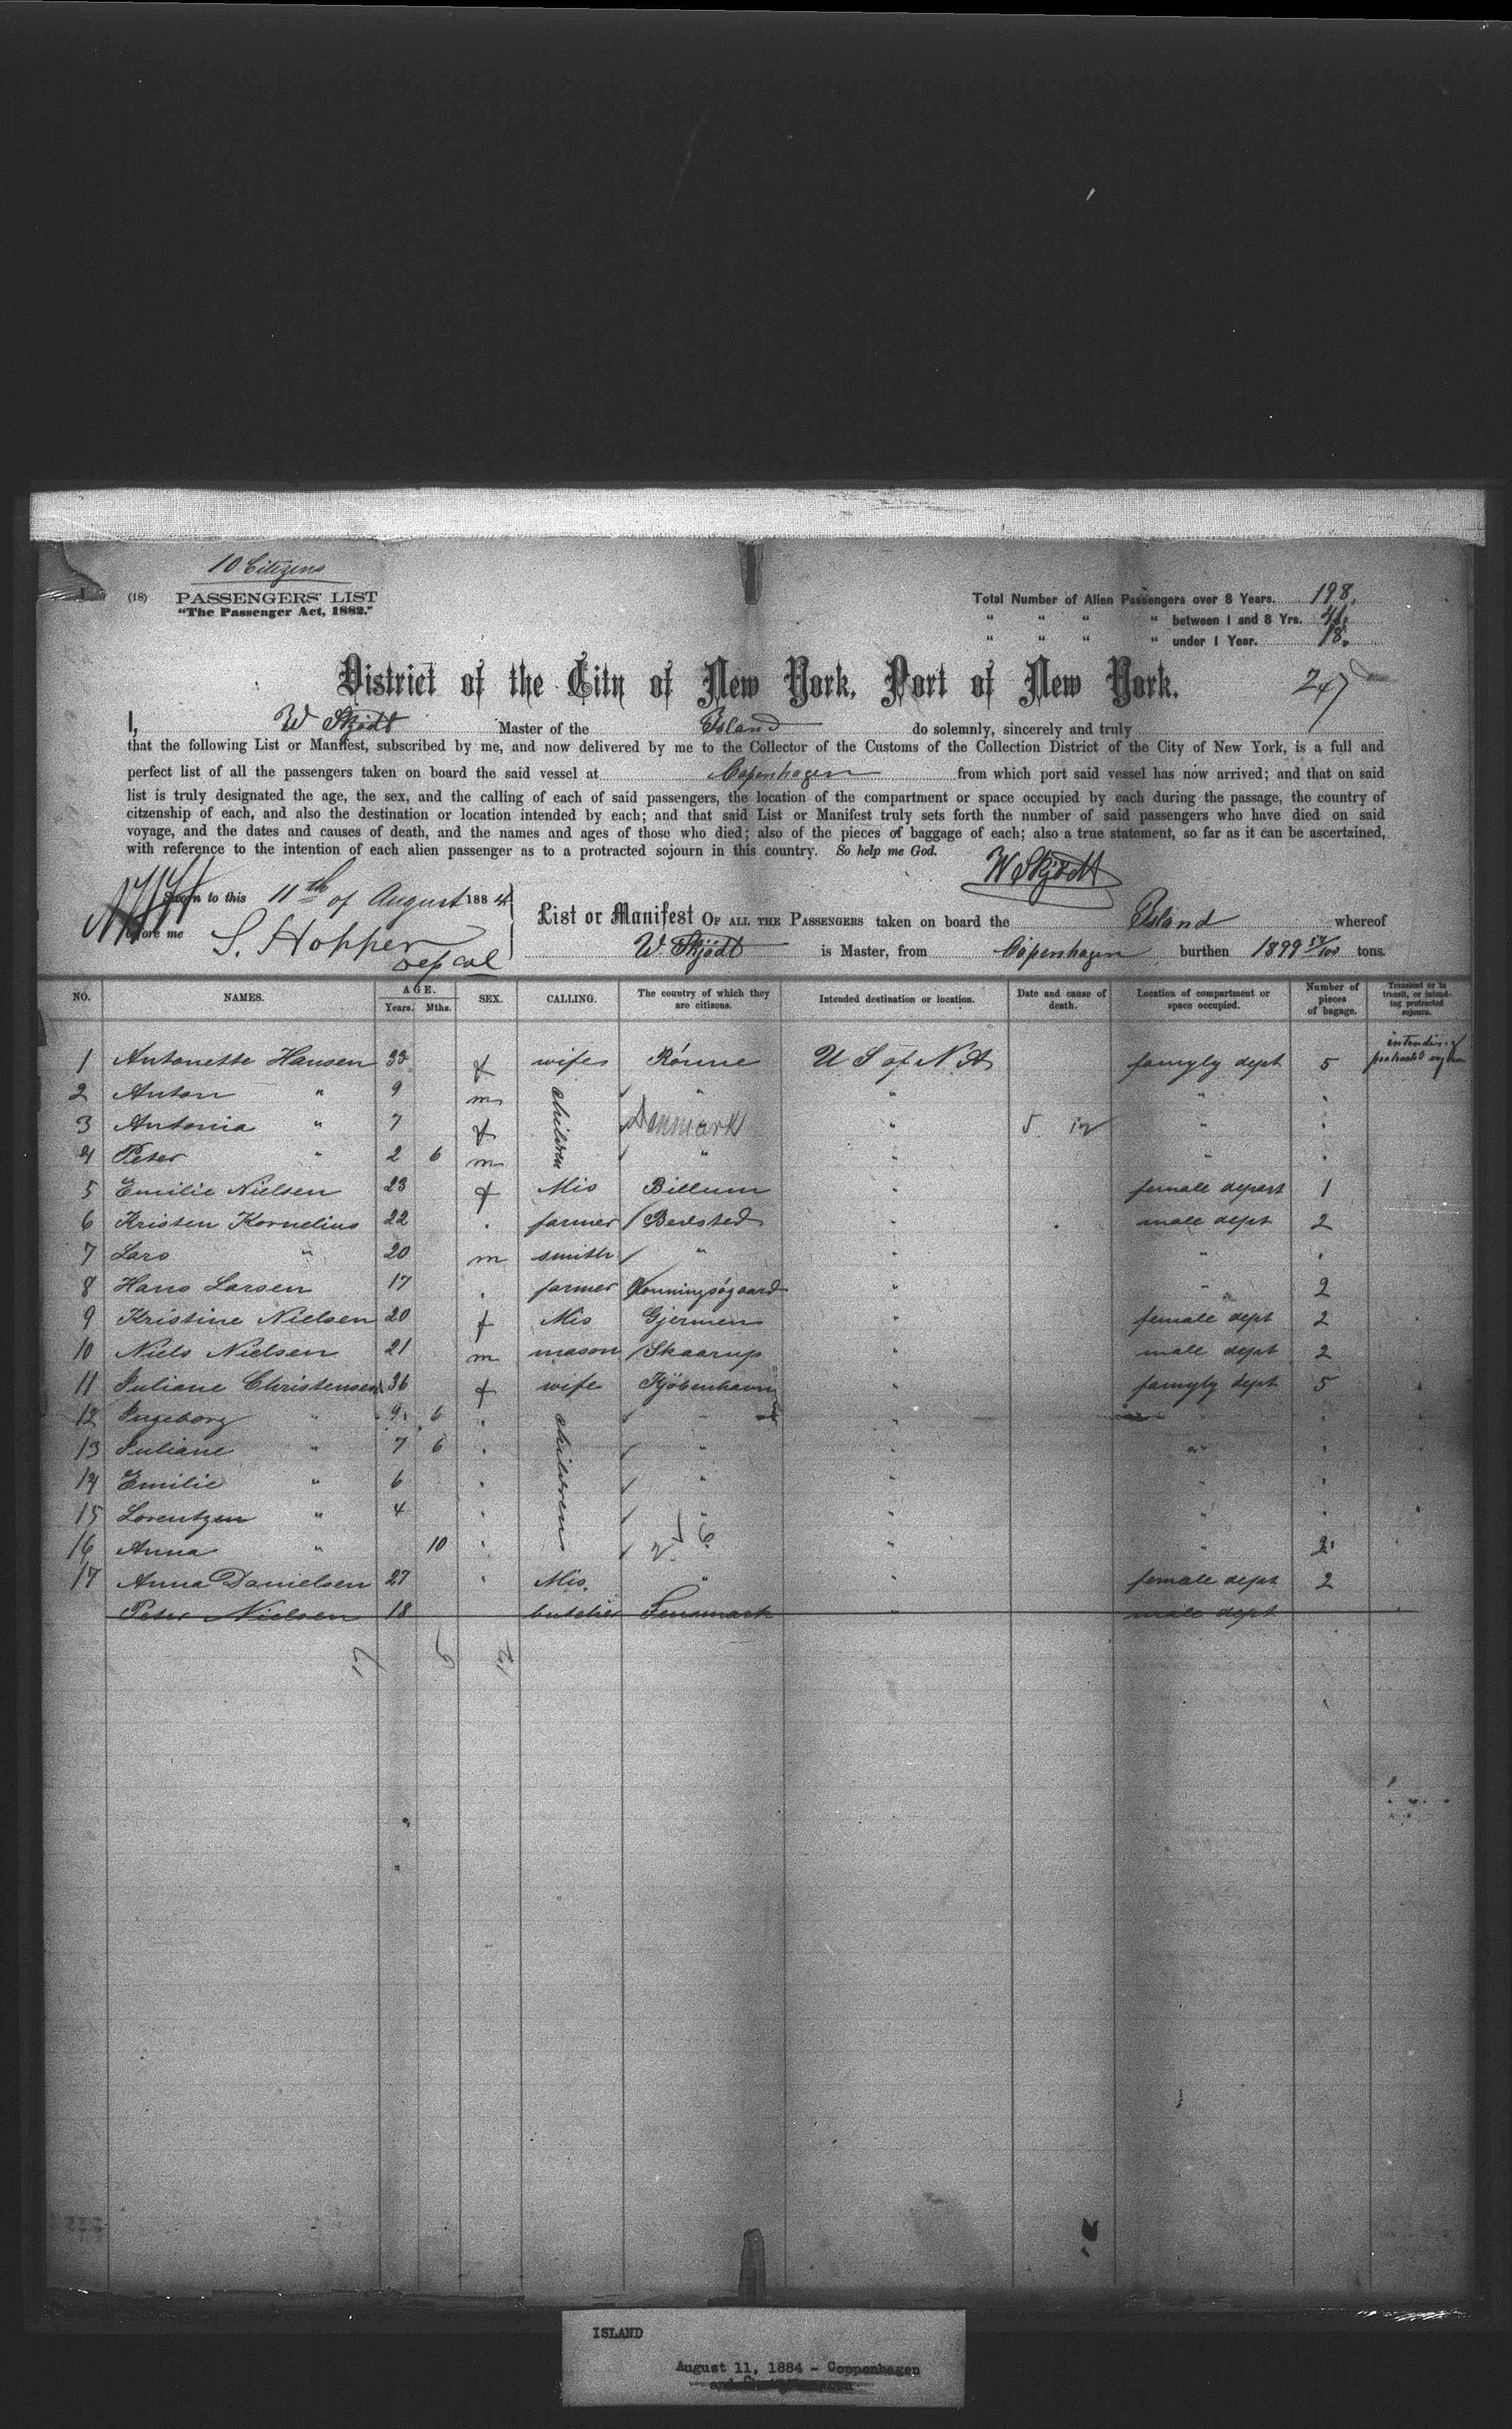 10 Citizens
(18) PASSENGERS' LIST
"The Passenger Act, 1882."
Total Number of Alien Passengers over 8 Years. 198.
" " " " between 1 and 8 Yrs. 41.
" " " " under 1 Year. 18.
247
District of the City of New York, Port of New York.
I, W Skjödt Master of the Island do solemnly, sincerely and truly
that the following List or Manifest, subscribed by me, and now delivered by me to the Collector of the Customs of the Collection District of the City of New York, is a full and
perfect list of all the passengers taken on board the said vessel at Copenhagen from which port said vessel has now arrived; and that on said
list is truly designated the age, the sex, and the calling of each of said passengers, the location of the compartment or space occupied by each during the passage, the country of
citzenship of each, and also the destination or location intended by each; and that said List or Manifest truly sets forth the number of said passengers who have died on said
voyage, and the dates and causes of death, and the names and ages of those who died; also of the pieces of baggage of each; also a true statement, so far as it can be ascertained,
with reference to the intention of each alien passenger as to a protracted sojourn in this country. So help me God.
W Skjödt
Sworn to this 11th of August 1884
before me S. Hopper
Dep Col
List or Manifest OF ALL THE PASSENGERS taken on board the Island whereof
W. Skjödt is Master, from Copenhagen burthen 1899 57/100 tons.
NO. NAMES. AGE. Years. Mths. SEX. CALLING. The country of which they are citizens. Intended destination or location. Date and cause of death. Location of compartment or space occupied. Number of pieces of bagage. Transient or in transit, or intending protracted sojourn.
1 Antonette Hansen 33 f wife Rönne U S of N. A famyly dept 5 intending protracted sojourn
2 Anton " 9 m children " " "
3 Antonia " 7 f Denmark " "
4 Peter " 2 6 m " " "
5 Emilie Nielsen 23 f Mis Billum " female depart 1
6 Kristen Kornelius 22 " farmer Bedsted " male dept 2
7 Lars " 20 m smith " " "
8 Hans Larsen 17 " farmer " " 2
9 Kristine Nielsen 20 f Mis Gjermen " female dept 2
10 Niels Nielsen 21 m mason Skaarup " male dept 2
11 Juliane Christensen 36 f wife Kjöbenhavn " famyly dept 5
12 Ingeborg " 9 6 " children " " "
13 Juliane " 7 6 " " " "
14 Emilie " 6 " " " "
15 Lorentzen " 4 " " " "
16 Anna " 10 " " " 2
17 Anna Danielsen 27 " Mis. " " female dept 2
Peter Nielsen 18 butcher " male dept
ISLAND
August 11, 1884 - Coppenhagen